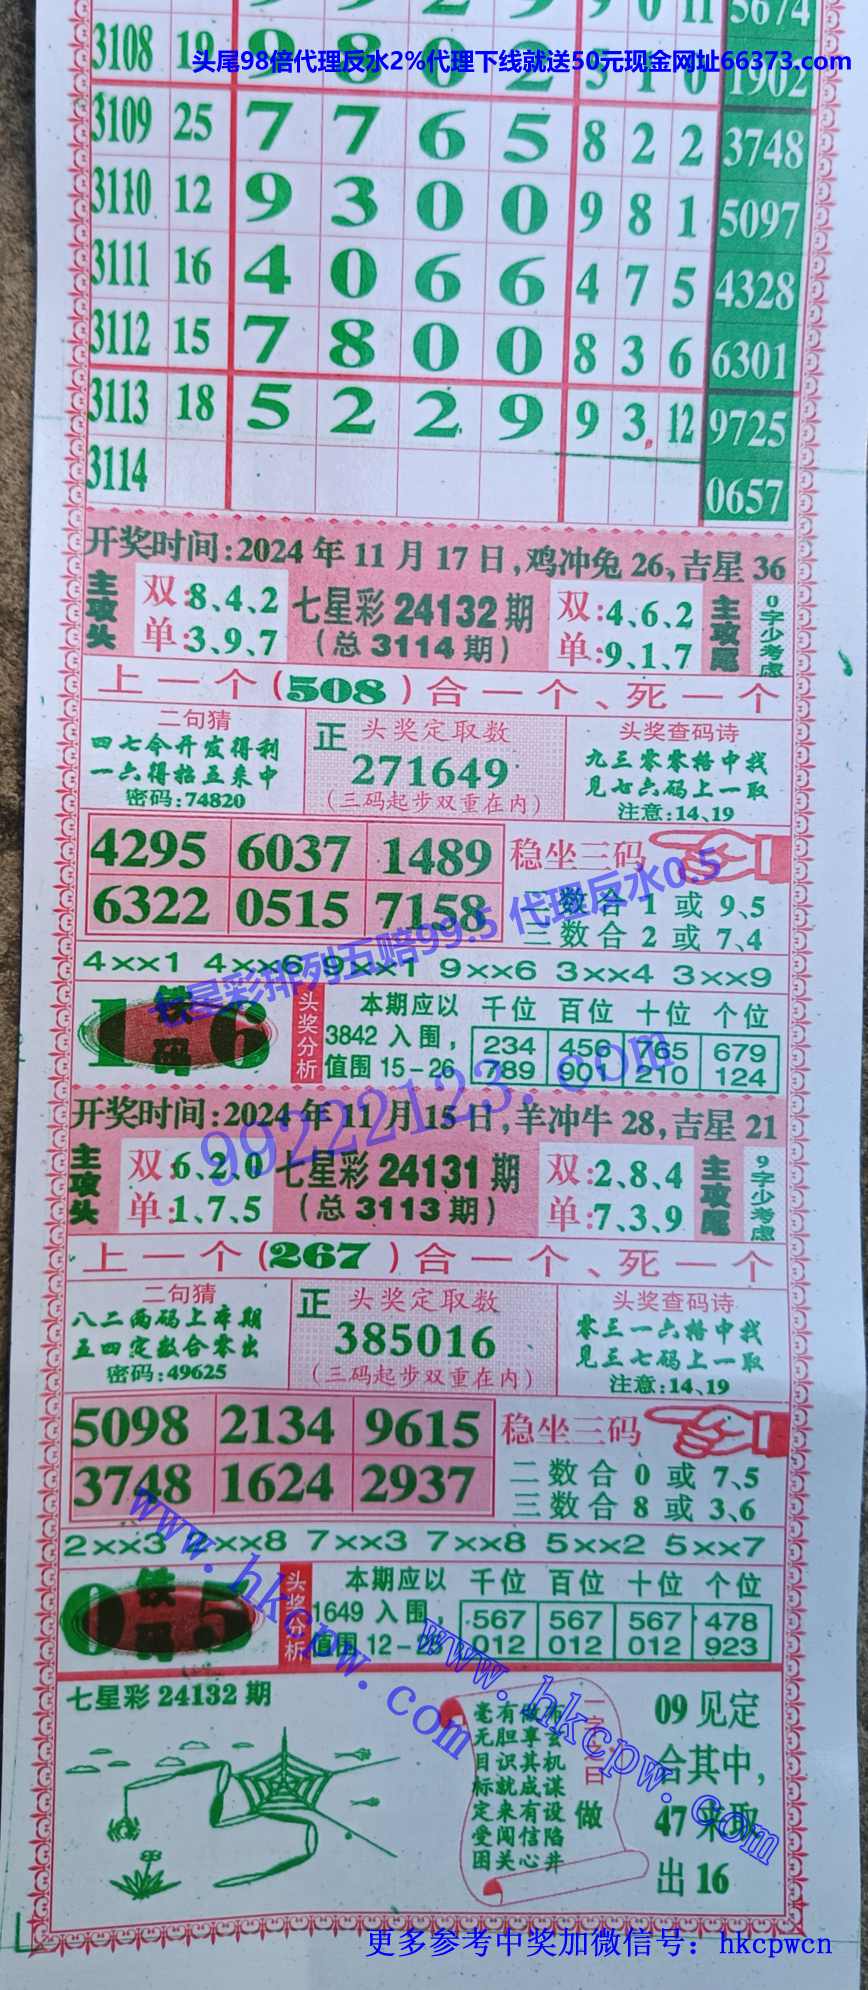 9 9 2 9 9 0 11 5674
3108 19 9 8 0 2 5 1 0 1902
头尾98倍代理反水2%代理下线就送50元现金网址66373.com
3109 25 7 7 6 5 8 2 2 3748
3110 12 9 3 0 0 9 8 1 5097
3111 16 4 0 6 6 4 7 5 4328
3112 15 7 8 0 0 8 3 6 6301
3113 18 5 2 2 9 9 3 12 9725
3114 0657
开奖时间:2024年11月17日,鸡冲兔26,吉星36
主攻头
双:8、4、2
单:3、9、7
七星彩24132期
(总3114期)
双:4、6、2
单:9、1、7
主攻尾
0字少考虑
上一个(508)合一个、死一个
二句猜
四七合开发得利
一六得拾五来中
密码:74820
正 头奖定取数
271649
(三码起步双重在内)
头奖查码诗
九三零零格中找
见七六码上一取
注意:14、19
4295 6037 1489
6322 0515 7158
稳坐三码
二数合1或9、5
三数合2或7、4
4××1 4××6 9××1 9××6 3××4 3××9
七星彩排列五赔99.5 代理反水0.5
1铁码6
头奖分析
本期应以
3842入围,
值围15-26
千位 百位 十位 个位
234 456 765 679
789 901 210 124
99222123.com
开奖时间:2024年11月15日,羊冲牛28,吉星21
主攻头
双:6、2、0
单:1、7、5
七星彩24131期
(总3113期)
双:2、8、4
单:7、3、9
主攻尾
9字少考虑
上一个(267)合一个、死一个
二句猜
八二两码上本期
五四定数合零出
密码:49625
正 头奖定取数
385016
(三码起步双重在内)
头奖查码诗
零三一六格中找
见三七码上一取
注意:14、19
5098 2134 9615
3748 1624 2937
稳坐三码
二数合0或7、5
三数合8或3、6
2××3 2××8 7××3 7××8 5××2 5××7
0铁码5
头奖分析
本期应以
1649入围,
值围12-25
千位 百位 十位 个位
567 567 567 478
012 012 012 923
www.hkcpw.com
www.hkcpw.com
七星彩24132期
一字之曰
做
毫有做
无胆享玄
目识其机
标就成谋
定来有设
受闯信陷
困关心井
09见定
合其中,
47来取
出16
更多参考中奖加微信号：hkcpwcn